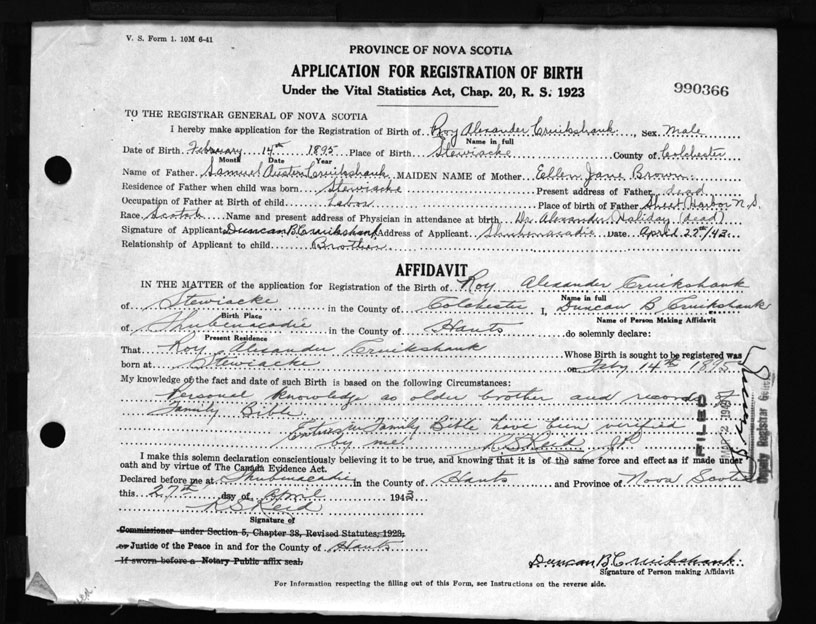 V. S. Form 1. 10M 6-41
PROVINCE OF NOVA SCOTIA
APPLICATION FOR REGISTRATION OF BIRTH
Under the Vital Statistics Act, Chap. 20, R. S. 1923
990366
TO THE REGISTRAR GENERAL OF NOVA SCOTIA
I hereby make application for the Registration of Birth of Roy Alexander Cruikshank, Sex Male
Name in full
Date of Birth February 14th 1895 Place of Birth Stewiacke County of Colchester
Month Date Year
Name of Father Samuel Austen Cruikshank MAIDEN NAME of Mother Ellen Jane Brown
Residence of Father when child was born Stewiacke Present address of Father dead
Occupation of Father at Birth of child Labor Place of birth of Father Sheet Harbor N.S.
Race Scotch Name and present address of Physician in attendance at birth Dr Alexander Haliday (dead)
Signature of Applicant Duncan B Cruikshank Address of Applicant Shubenacadie Date April 27th/43
Relationship of Applicant to child Brother
AFFIDAVIT
IN THE MATTER of the application for Registration of the Birth of Roy Alexander Cruikshank
Name in full
of Stewiacke in the County of Colchester I, Duncan B Cruikshank
Birth Place Name of Person Making Affidavit
of Shubenacadie in the County of Hants do solemnly declare:
Present Residence
That Roy Alexander Cruikshank Whose Birth is sought to be registered was
born at Stewiacke on Feby 14th 1895
My knowledge of the fact and date of such Birth is based on the following Circumstances:
Personal knowledge as older brother and records of
Family Bible
Entries in Family Bible have been verified
by me. R S Reid JP
FILED
Deputy Registrar
I make this solemn declaration conscientiously believing it to be true, and knowing that it is of the same force and effect as if made under
oath and by virtue of The Canada Evidence Act.
Declared before me at Shubenacadie in the County of Hants and Province of Nova Scotia
this 27th day of April 1943
R S Reid
Signature of
Commissioner under Section 5, Chapter 38, Revised Statutes, 1923,
or Justice of the Peace in and for the County of Hants
If sworn before a Notary Public affix seal,
Duncan B Cruikshank
Signature of Person making Affidavit
For Information respecting the filling out of this Form, see Instructions on the reverse side.